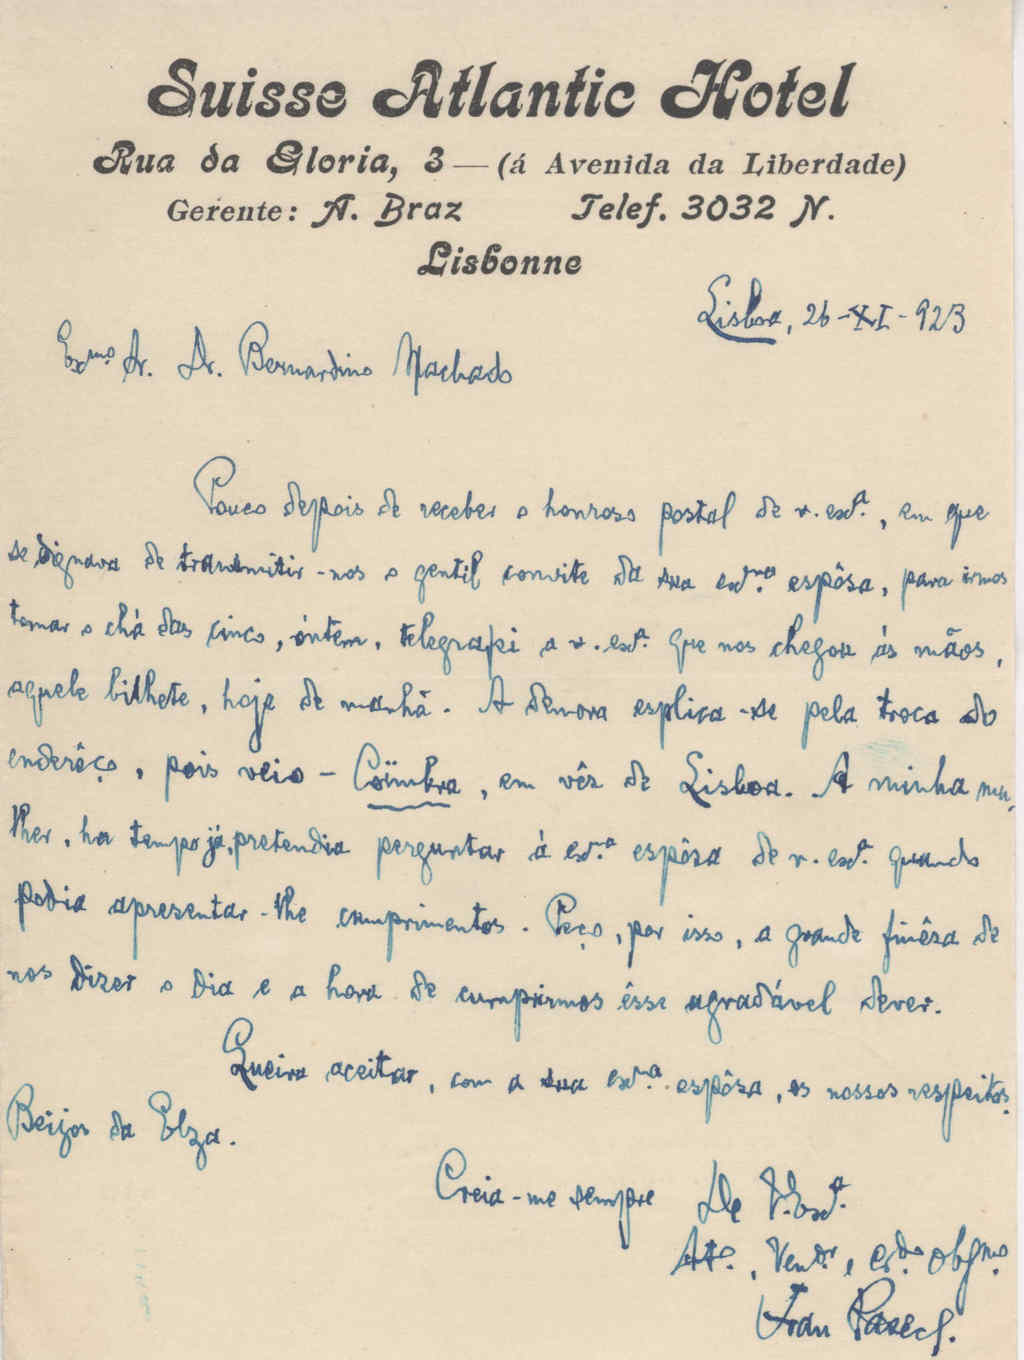 Suisse Atlantic Hotel
Rua da Gloria, 3 — (á Avenida da Liberdade)
Gerente: A. Braz Telef. 3032 N.
Lisbonne
Lisboa, 26-XI-923
Exmo Sr. Dr. Bernardino Machado
Pouco depois de receber o honroso postal de v. exª., em que
se dignava de transmitir-nos o gentil convite da sua exma. espôsa, para irmos
tomar o chá das cinco, óntem, telegrafei a v. exª. que nos chegou ás mãos,
aquele bilhete, hoje de manhã. A demora explica-se pela troca do
enderêço, pois veio - Coïmbra, em vês de Lisboa. A minha mu-
lher, ha tempo já, pretendia perguntar á exª. espôsa de v. exª. quando
podia apresentar-lhe cumprimentos. Peço, por isso, a grande finêsa de
nos dizer o dia e a hora de cumprirmos êsse agradável dever.
Queira aceitar, com a sua exma. espôsa, os nossos respeitos.
Beijos da Elza.
Creia-me sempre De V. Exª.
Atº., Vendr, crdo. obgmo.
Fran Paxeco.